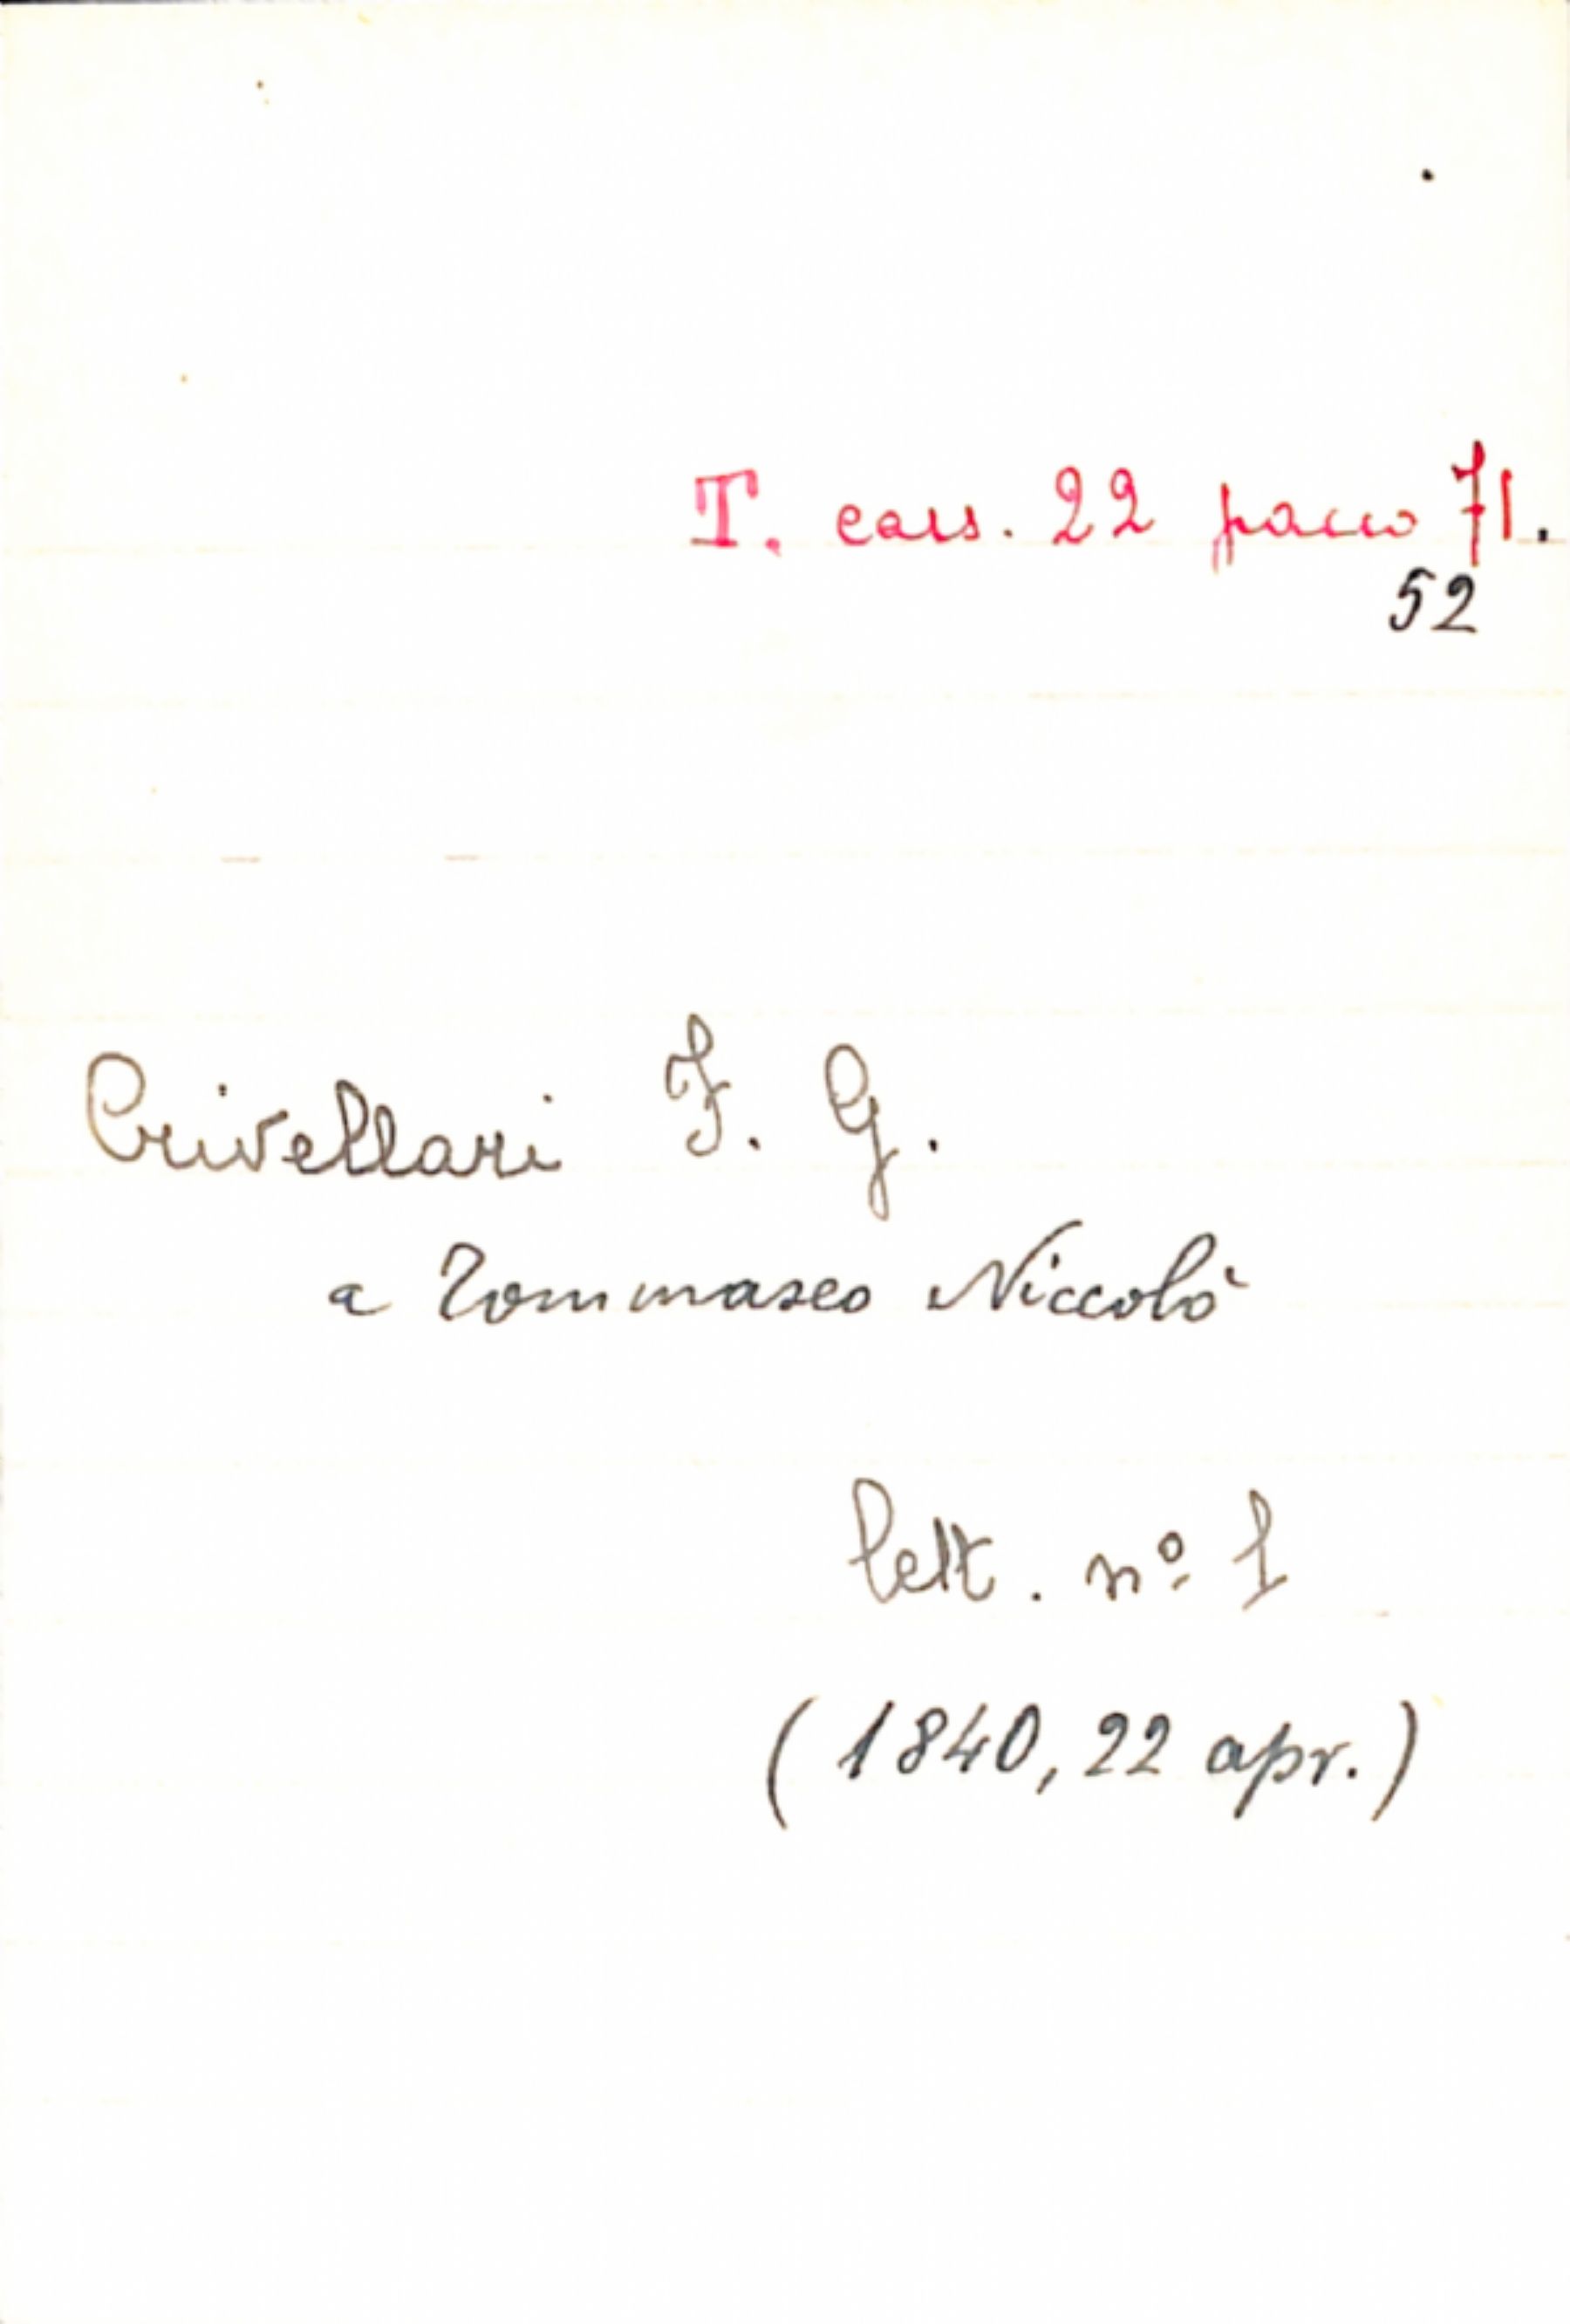 T. cass. 22 pacco 71.
52
Crivellari F. G.
a Tommaseo Niccolò
lett. nº 1
(1840, 22 apr.)